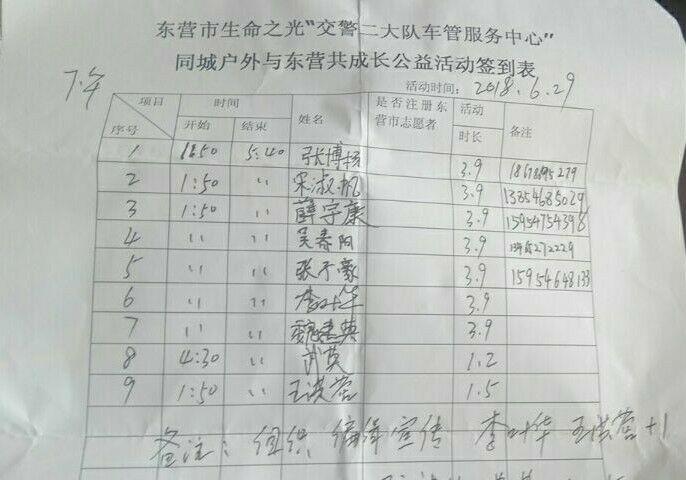 东营市生命之光“交警二大队车管服务中心”
同城户外与东营共成长公益活动签到表
下午 活动时间：2018.6.29
项目 时间 姓名 是否注册东营市志愿者 活动时长 备注
序号 开始 结束
1 1:50 5:40 张博扬 3.9
2 1:50 〃 宋淑帆 3.9 13854685029
3 1:50 〃 薛宇康 3.9 15954754398
4 〃 〃 吴春阳 3.9
5 〃 〃 张子豪 3.9 15954648133
6 〃 〃 李叶华 3.9
7 〃 〃 3.9
8 4:30 〃 刘英 1.2
9 1:50 〃 王洪蓉 1.5
备注：组织 编辑宣传 李叶华 王洪蓉+1